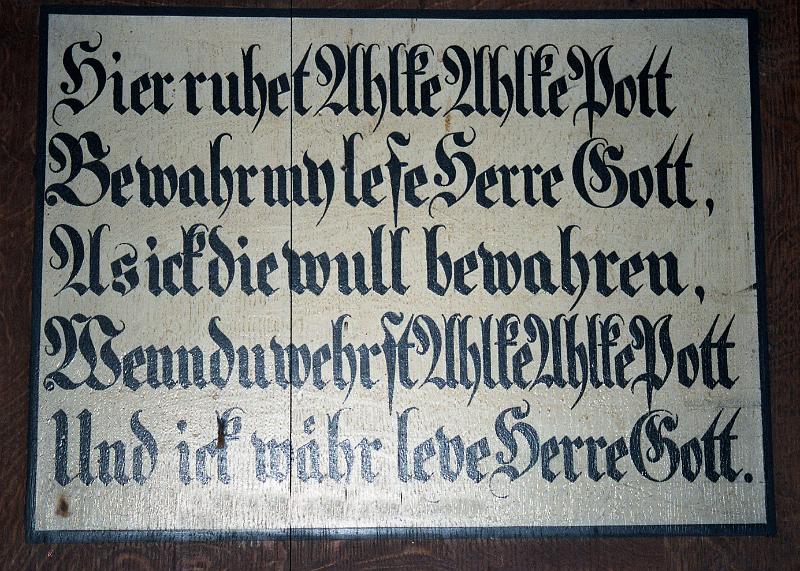 Hier ruhet Ahlke Ahlke Pott
Bewahr my lefe Herre Gott,
As ick die wull bewahren,
Wenn du wehrst Ahlke Ahlke Pott
Und ick währ leve Herre Gott.